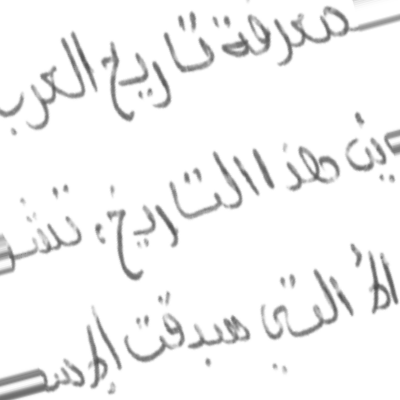 معرفة تاريخ العرب
هذا التاريخ، تشـ
التي سبقت الإسـ